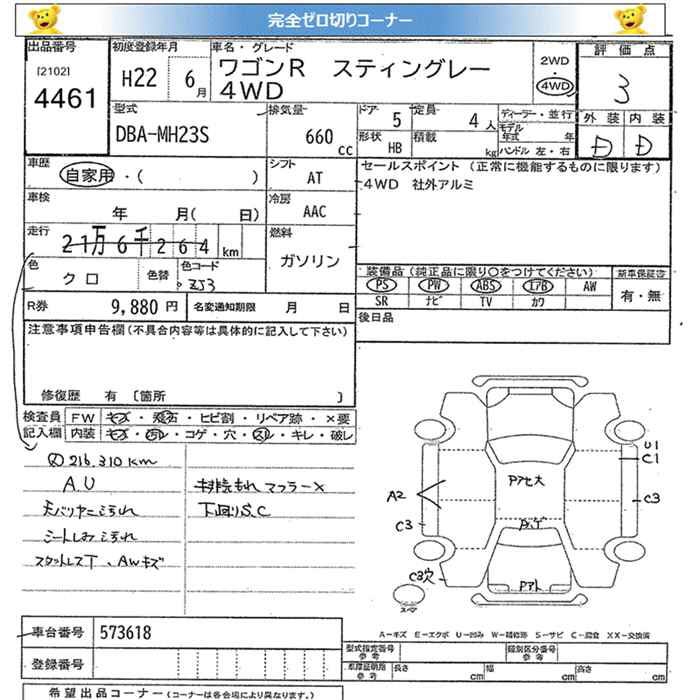 完全ゼロ切りコーナー
出品番号
[2102]
4461
初度登録年月
H22 6月
車名・グレード
ワゴンR スティングレー
4WD
2WD
・
4WD
評価点
3
外装 内装
D D
型式
DBA-MH23S
排気量
660 cc
ドア 5
定員 4人
形状 HB
積載 kg
ディーラー・並行
モデル年式 年
ハンドル 左・右
車歴
自家用・( )
シフト
AT
セールスポイント(正常に機能するものに限ります)
4WD 社外アルミ
車検
年 月( 日)
冷房
AAC
走行
21万6千264km
燃料
ガソリン
色
クロ
色替
色コード
ZJ3
装備品(純正品に限り○をつけてください)
PS PW ABS エアB AW
SR ナビ TV カワ
新車保証書
有・無
R券 9,880円
名変通知期限 月 日
後日品
注意事項申告欄(不具合内容等は具体的に記入して下さい)
修復歴 有〔箇所 〕
検査員
記入欄
FW キズ・飛石・ヒビ割・リペア跡・×要
内装 キズ・汚レ・コゲ・穴・スレ・キレ・破レ
216,310km
A.U
天バリヤニよごれ
シートしみよごれ
スタットレスT、AWキズ
キ排気もれ マフラー×
下回りS,C
U1
C1
C3
A2
C3
C3穴
Pアセ大
Pハゲ
Pアト
車台番号 573618
登録番号
A-キズ E-エクボ U-凹み W-補修跡 S-サビ C-腐食 XX-交換済
型式指定番号
参考
類別区分番号
参考
車庫証明用
参考
長さ cm
幅 cm
高さ cm
希望出品コーナー(コーナーは各会場により異なります。)